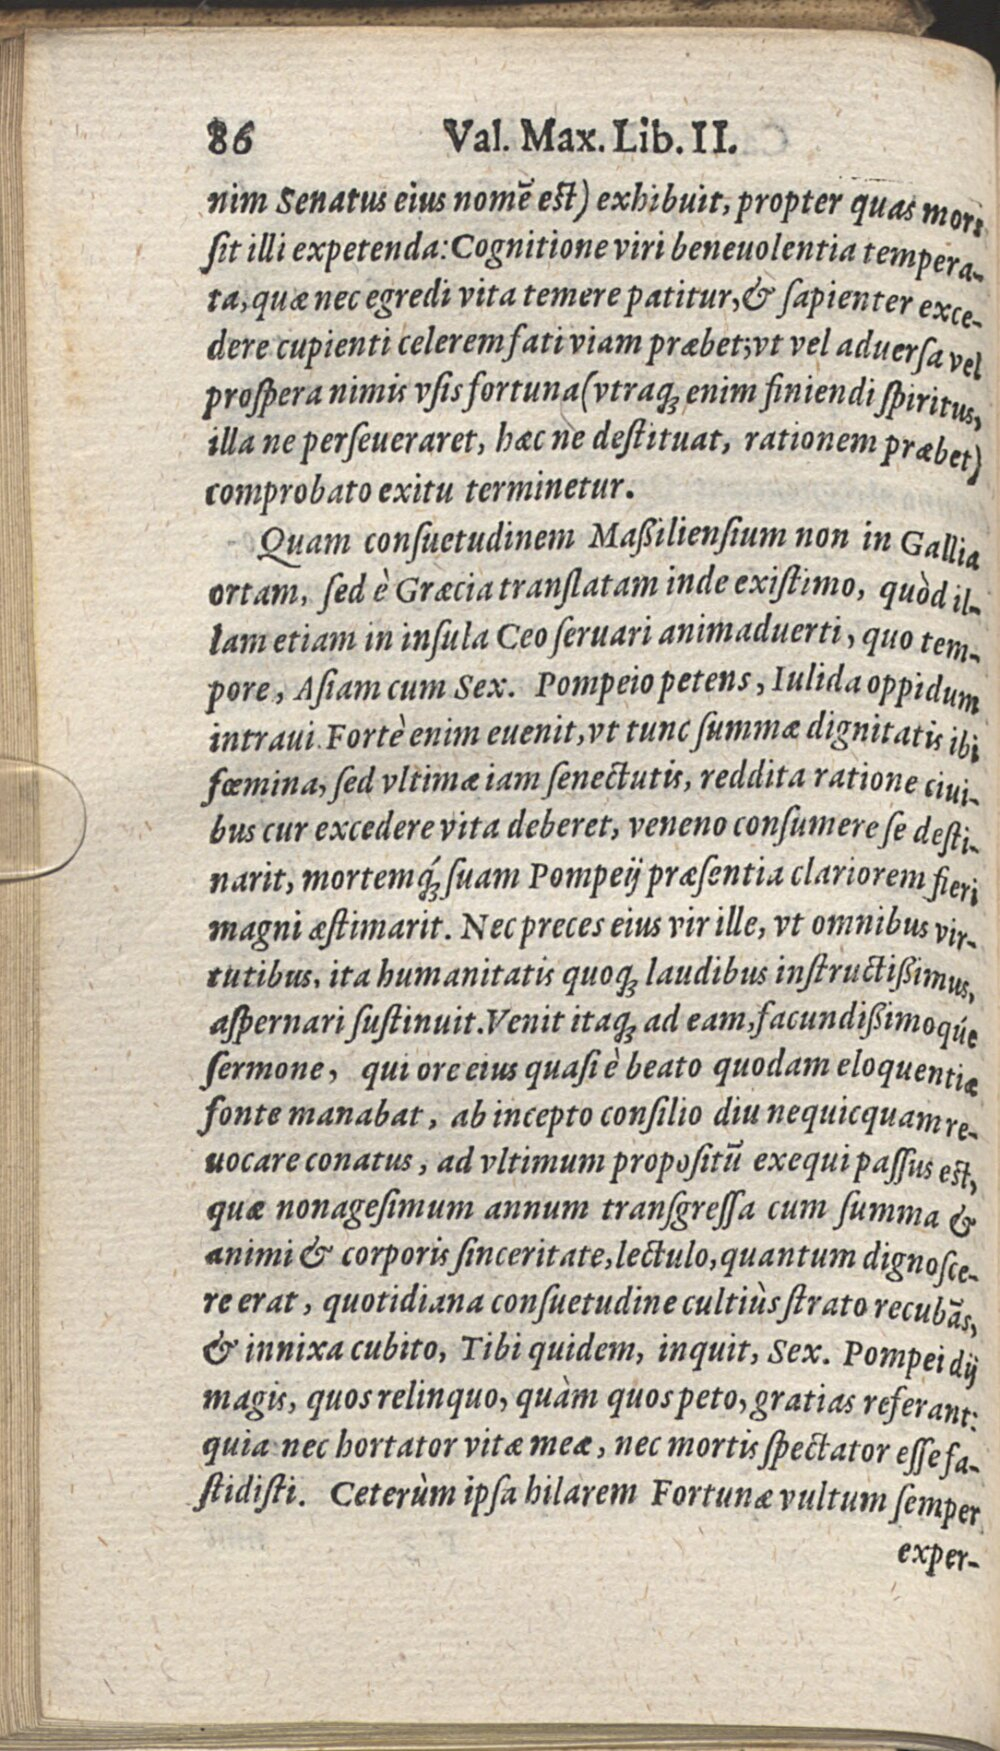 86 Val. Max. Lib. II.
nim Senatus eius nomē est) exhibuit, propter quas mors
ſit illi expetenda: Cognitione viri beneuolentia tempera-
ta, quæ nec egredi vita temere patitur, & ſapienter exce-
dere cupienti celerem fati viam præbet; vt vel aduerſa vel
proſpera nimis vſis fortuna (vtraq; enim finiendi ſpiritus,
illa ne perſeueraret, hæc ne deſtituat, rationem præbet)
comprobato exitu terminetur.
Quam conſuetudinem Maßilienſium non in Gallia
ortam, ſed è Græcia tranſlatam inde exiſtimo, quòd il-
lam etiam in inſula Ceo ſeruari animaduerti, quo tem-
pore, Aſiam cum Sex. Pompeio petens, Iulida oppidum
intraui. Fortè enim euenit, vt tunc ſummæ dignitatis ibi
fœmina, ſed vltimæ iam ſenectutis, reddita ratione ciui-
bus cur excedere vita deberet, veneno conſumere ſe deſti-
narit, mortemq́; ſuam Pompeij præſentia clariorem fieri
magni æſtimarit. Nec preces eius vir ille, vt omnibus vir-
tutibus, ita humanitatis quoq; laudibus inſtructißimus,
aſpernari ſuſtinuit. Venit itaq; ad eam, facundißimoqúe
ſermone, qui ore eius quaſi è beato quodam eloquentiæ
fonte manabat, ab incepto conſilio diu nequicquam re-
uocare conatus, ad vltimum propoſitū exequi paſſus est,
quæ nonageſimum annum tranſgreſſa cum ſumma &
animi & corporis ſinceritate, lectulo, quantum dignoſce-
re erat, quotidiana conſuetudine cultiùs ſtrato recubās,
& innixa cubito, Tibi quidem, inquit, Sex. Pompei dij
magis, quos relinquo, quàm quos peto, gratias referant:
quia nec hortator vitæ meæ, nec mortis ſpectator eſſe fa-
ſtidiſti. Ceterùm ipſa hilarem Fortunæ vultum ſemper
exper-